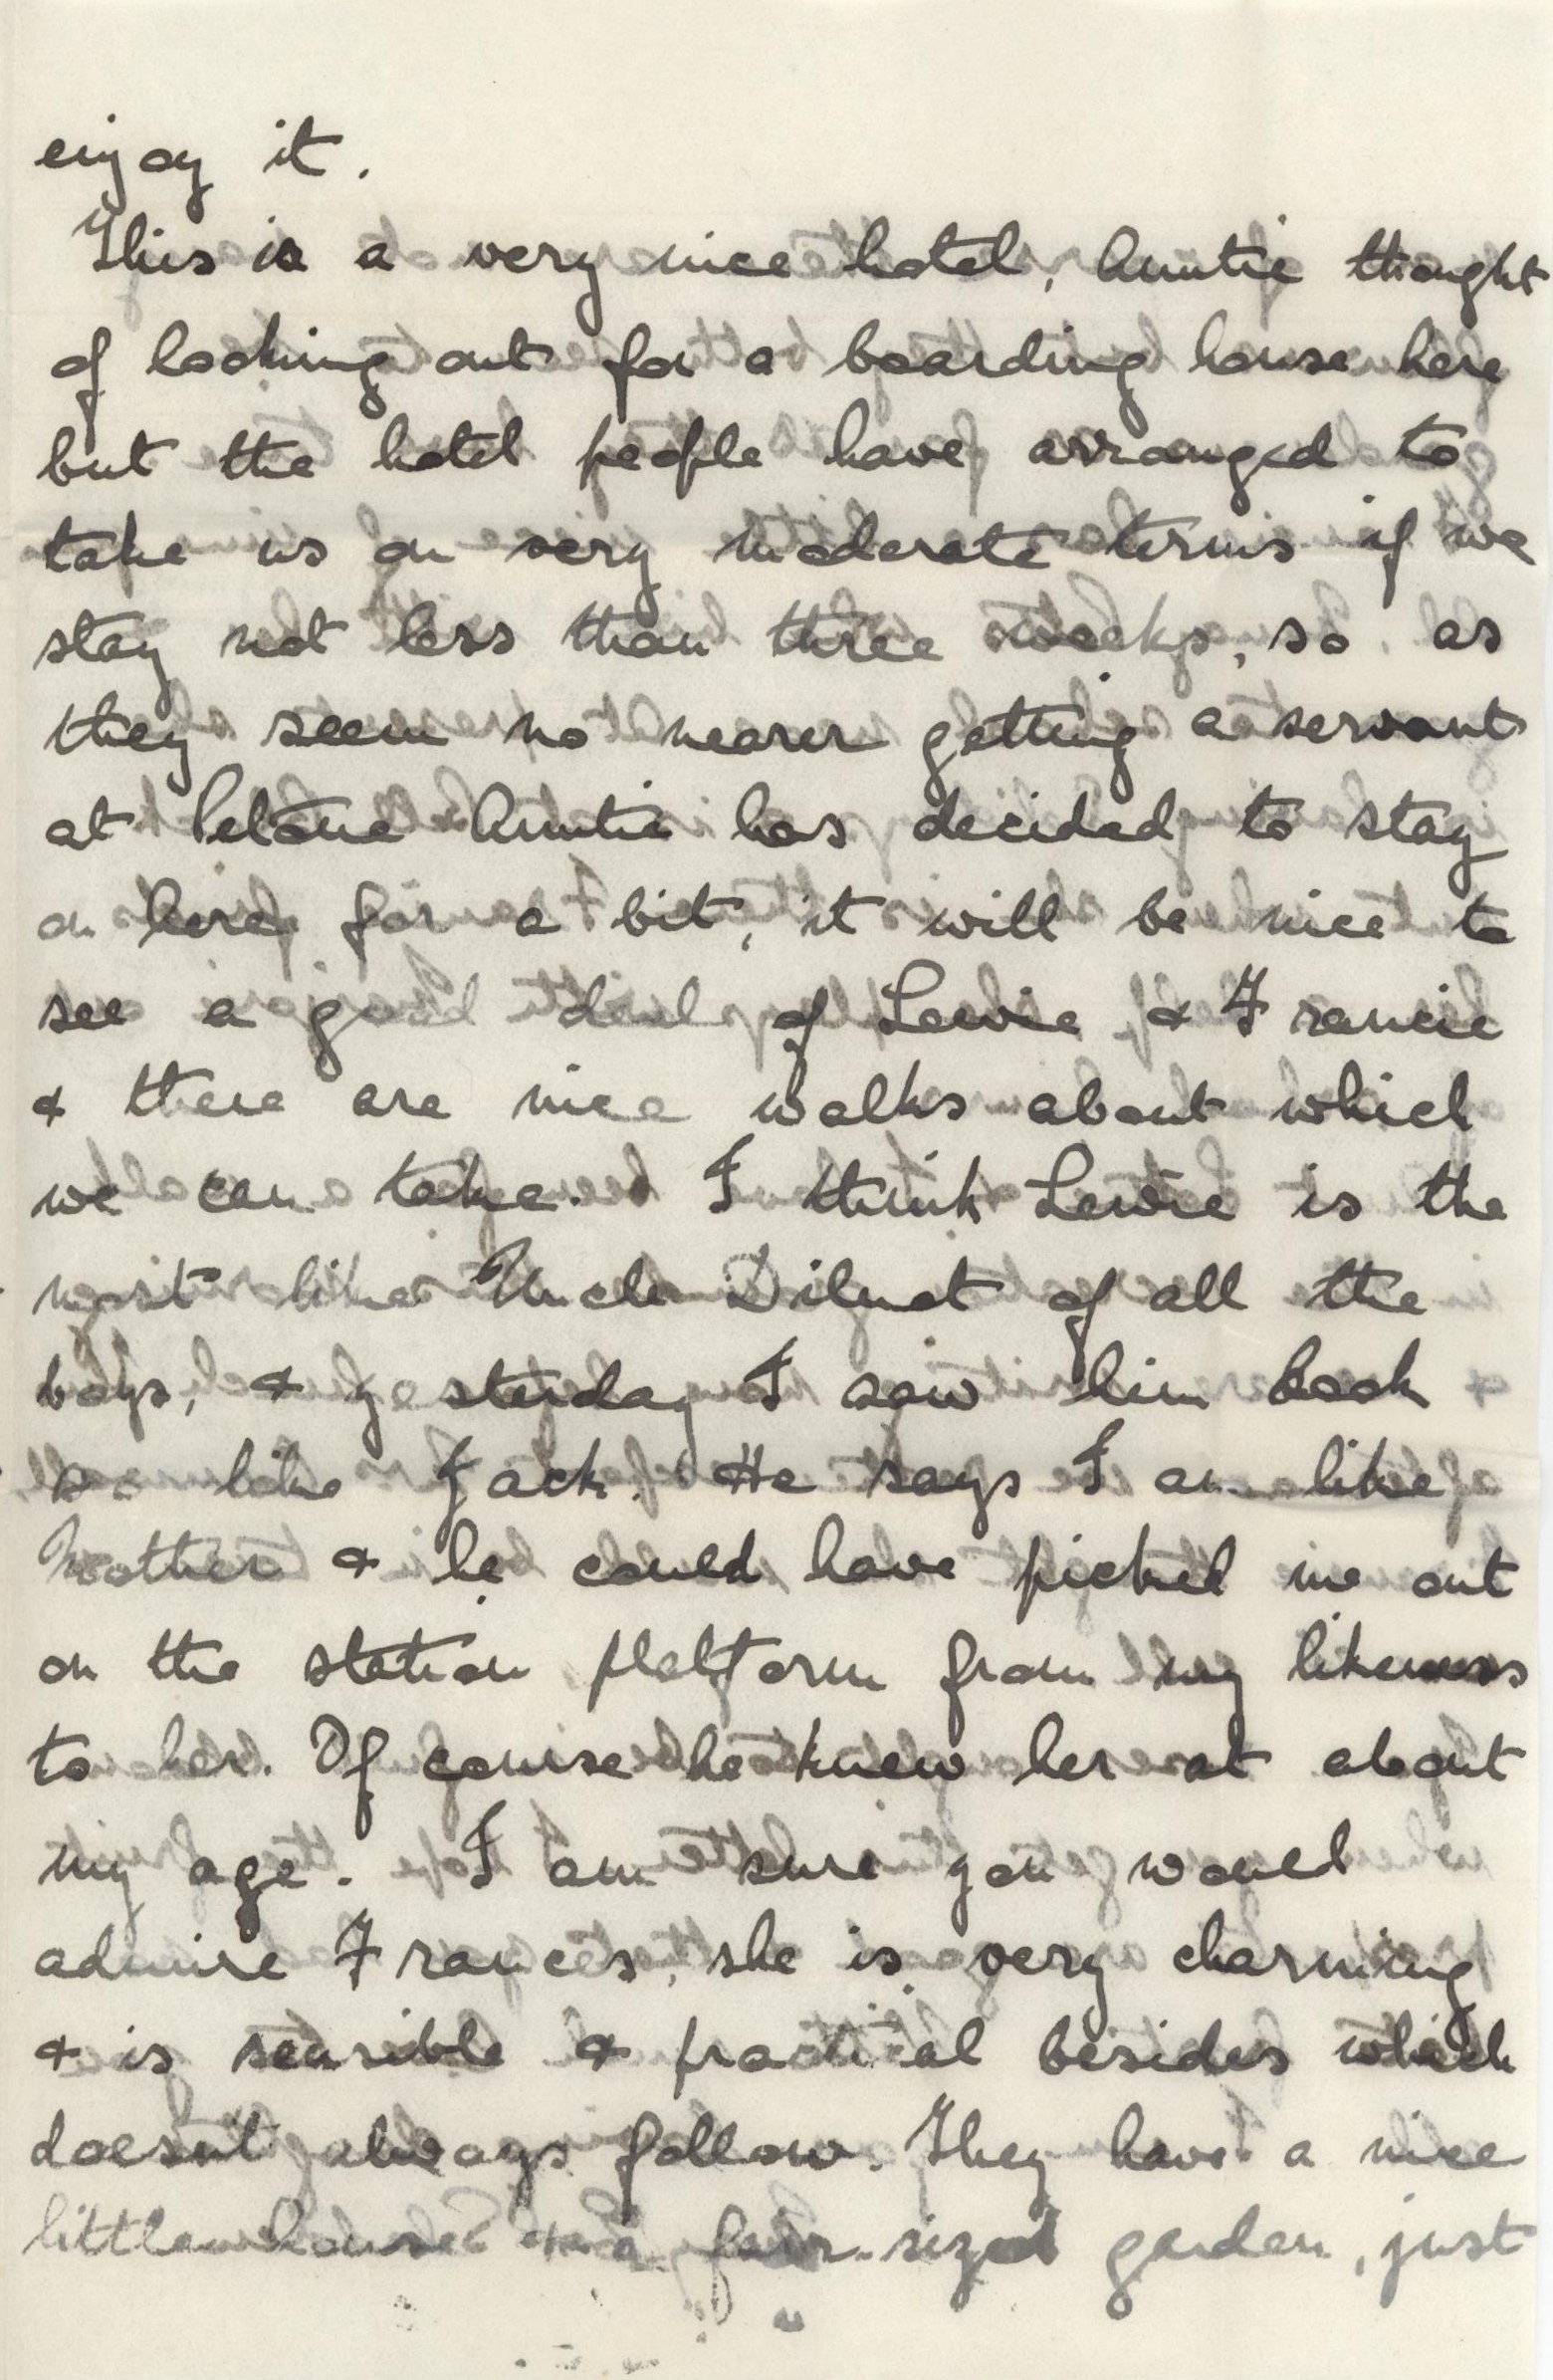 enjoy it.
This is a very nice hotel, Auntie thought
of looking out for a boarding house here
but the hotel people have arranged to
take us on very moderate terms if we
stay not less than three weeks, so as
they seem no nearer getting a servant
at Petone Auntie has decided to stay
on here for a bit, it will be nice to
see a good deal of Lewie & Francie
& there are nice walks about which
we can take. I think Lewie is the
most like Uncle Dilnot of all the
boys, & yesterday I saw him look
so like Jack. He says I am like
Mother & he could have picked me out
on the station platform from my likeness
to her. Of course he knew her at about
my age. I am sure you would
admire Frances, she is very charming
& is sensible & practical besides which
doesn't always follow. They have a nice
little house & a fair-sized garden, just